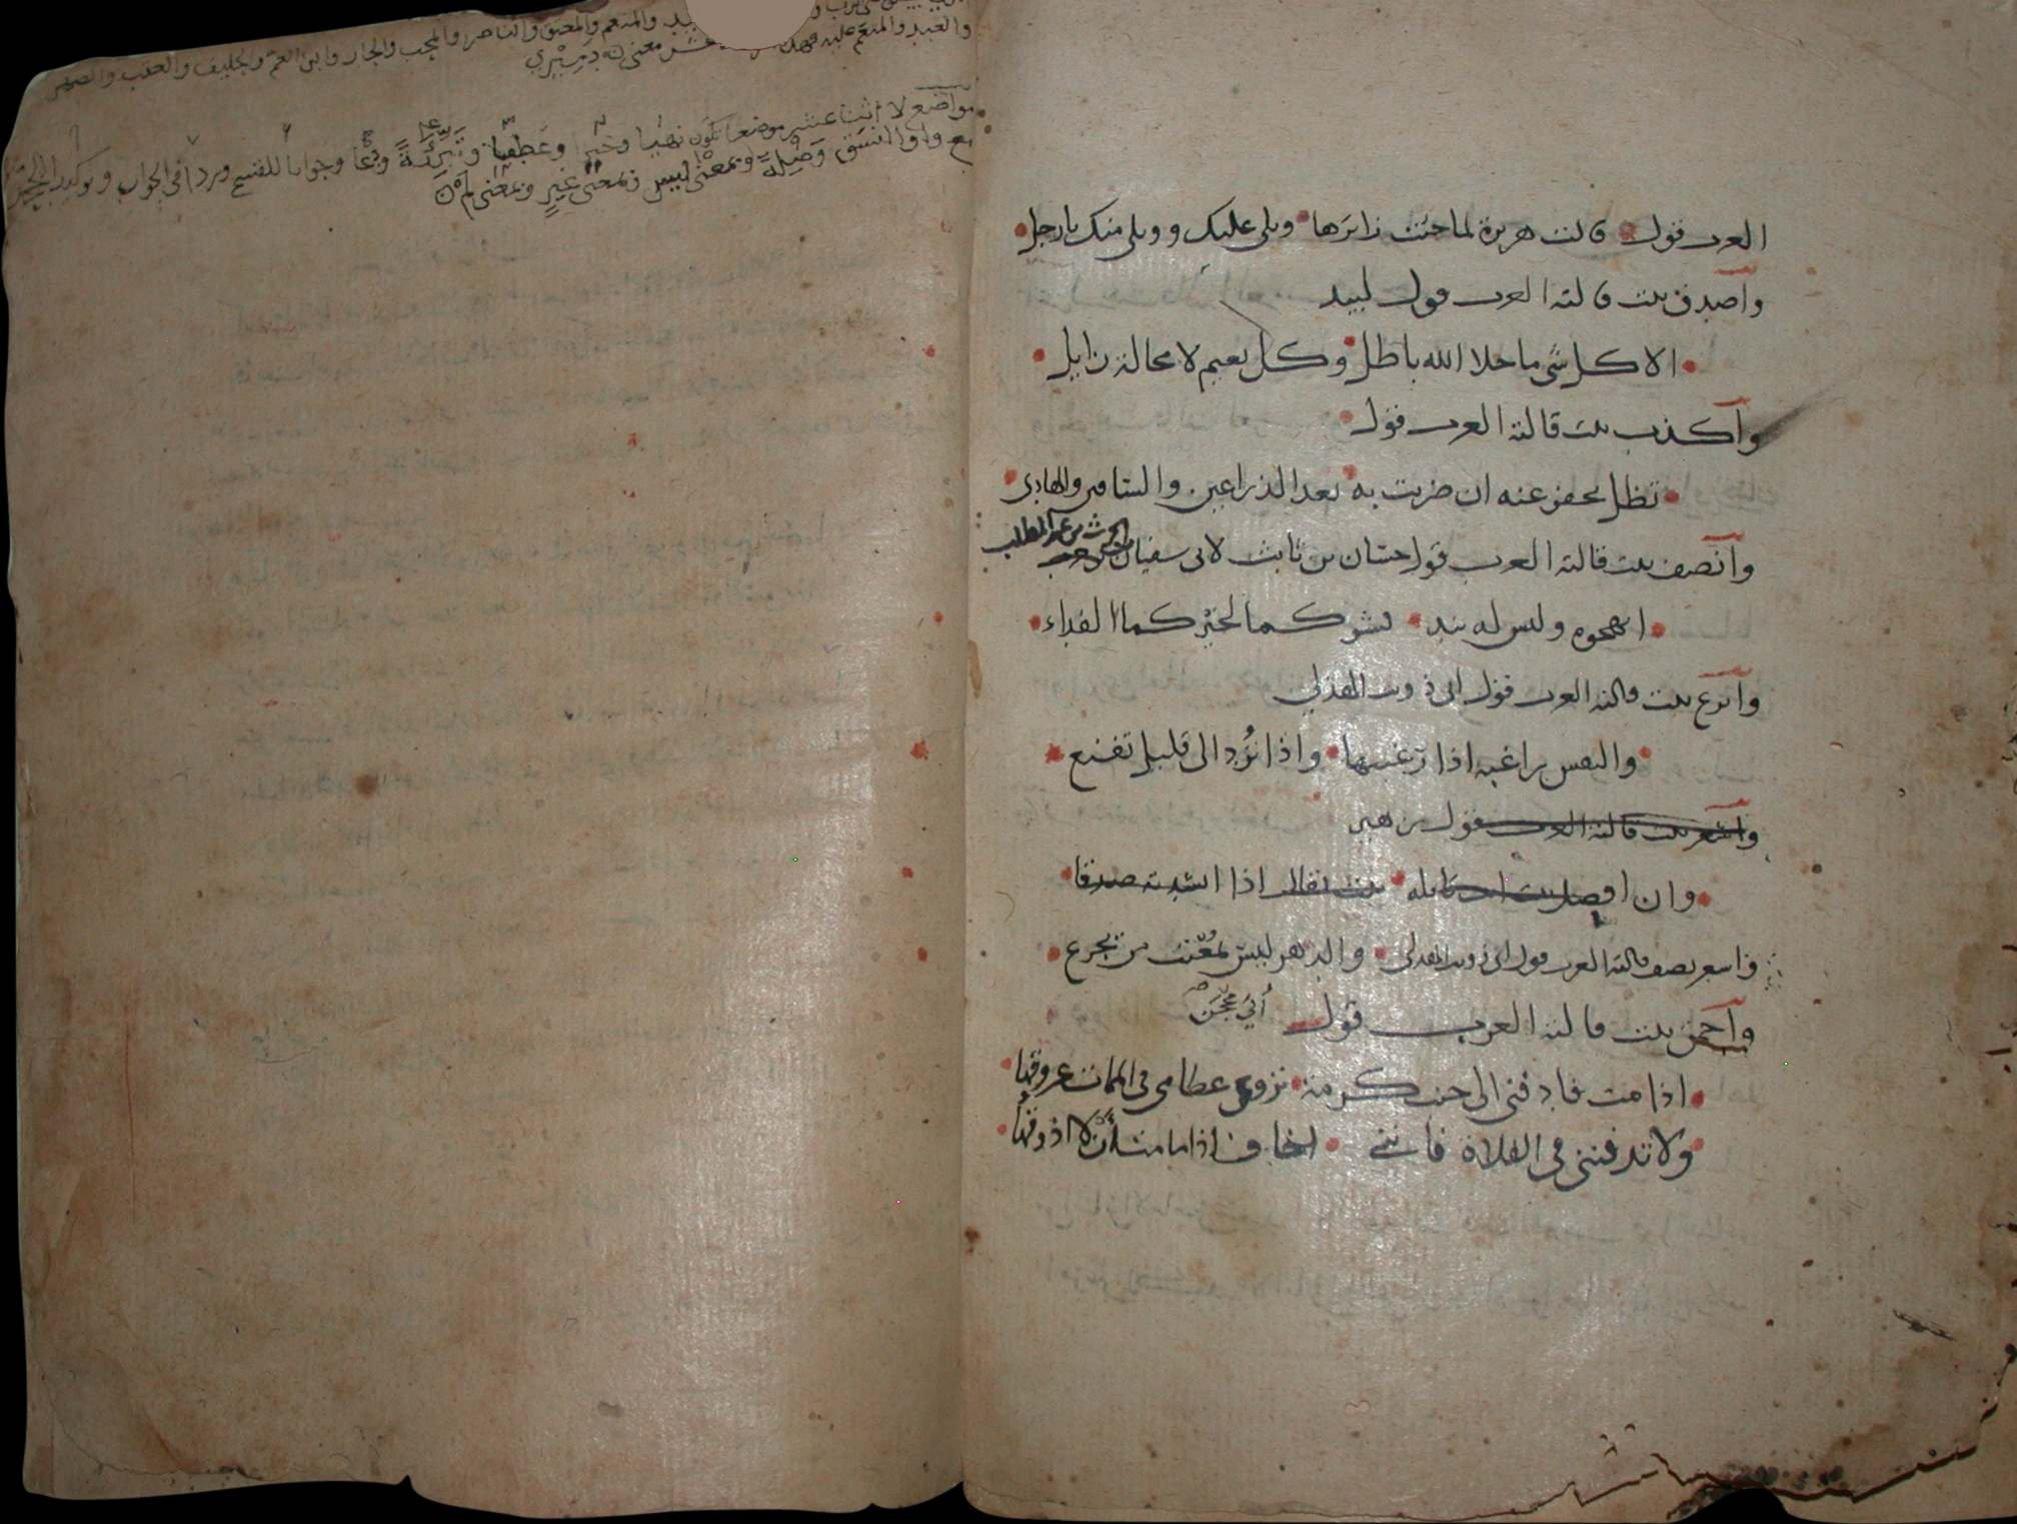 العرب قول قالت هريرة لما جئت زائرها ويلي عليك وويلي منك يا رجل
وأصدق بيت قالته العرب قول لبيد
الا كل شي ما خلا الله باطل وكل نعيم لا محالة زايل
وأكذب بيت قالته العرب قول
تظل تحفر عنه ان ضربت به بعد الذراعين والساقين والهادي
وأنصف بيت قالته العرب قول حسان بن ثابت لابي سفيان بن الحرث بن عبد المطلب
اتهجوه وليس له بند فشركما لخيركما الفداء
وأبرع بيت قالته العرب قول ابي ذويب الهذلي
والنفس راغبة اذا رغبتها واذا تُرد الى قليل تقنع
وأشعر بيت قالته العرب قول زهير
وان افضل بيت انت قايله بيت يقال اذا انشدته صدقا
واسير نصف قالته العرب قول ابي ذويب الهذلي والدهر ليس بمُعْتب من يجزع
وأحمق بيت قالته العرب قول أبي محجن
اذا مت فادفني الى جنب كرمة تروي عظامي في الممات عروقها
ولا تدفنني في الفلاة فانني اخاف اذا ما مت أن لا اذوقها
والمنعم والمعتق والناصر والمحب والجار وابن العم والحليف والعقب والصهر
والعبد والمنعم عليه معنى دَمِيْري
مواضع لا اثنا عشر موضعا تكون نهيا وخبرا وعطفا وتبرئةً وجوابا للقسم وردا في الجواب وتوكيدا
مع واو النسق وصلة وبمعنى ليس وبمعنى غير وبمعنى لم